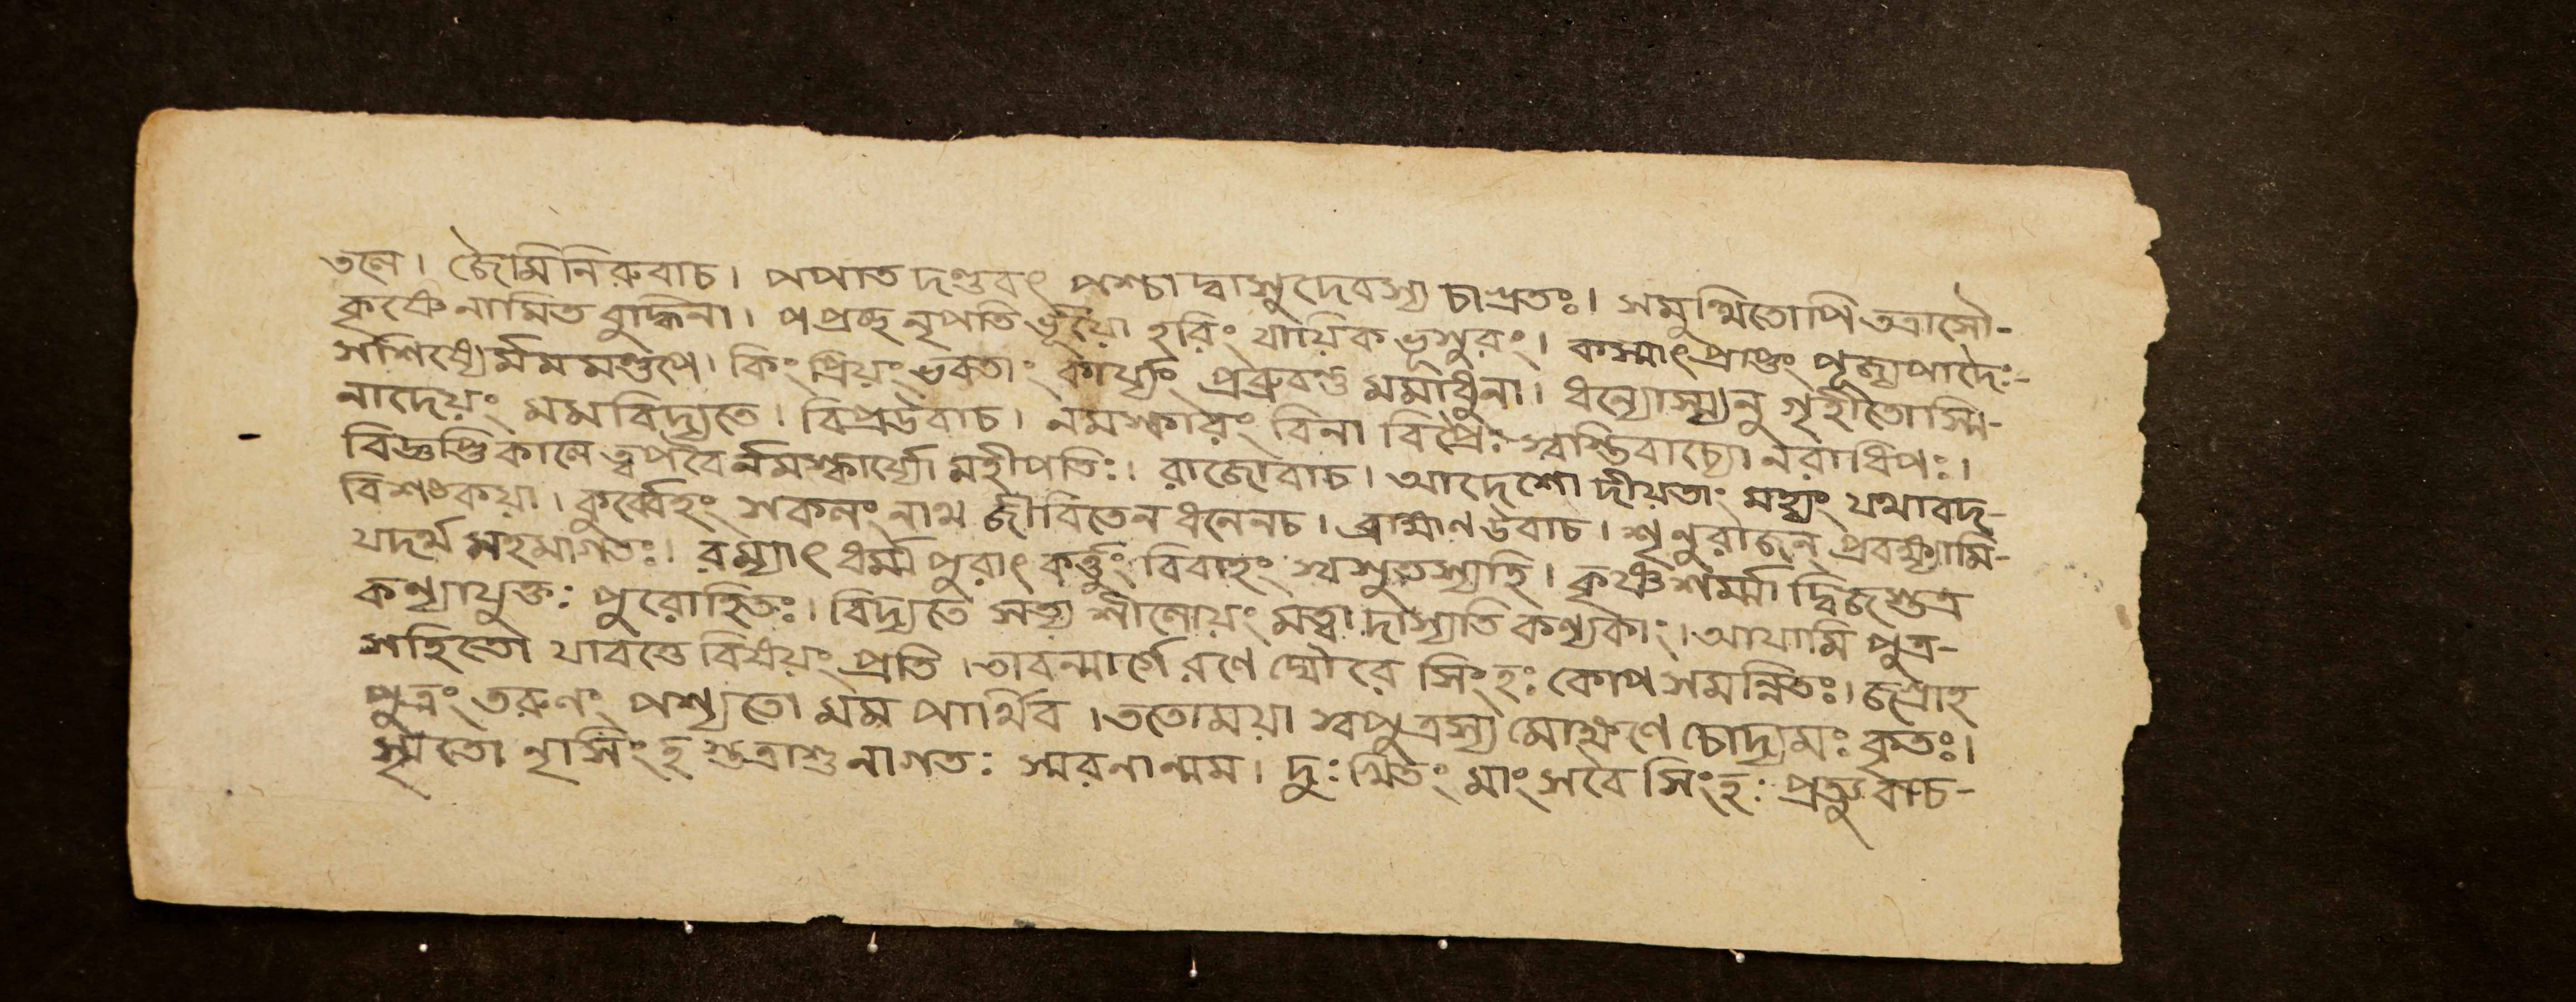 তলে। জৈমিনিরুবাচ। পপাত দণ্ডবৎ পশ্চাদ্বাসুদেবস্য চাগ্রতঃ। সমুত্থিতোপি তত্রাসৌ-
কৃষ্ণেনামিত বুদ্ধিনা। পপ্রচ্ছ নৃপতি র্ভূয়ো হরিং যায়িক ভূসুরং। কস্মাৎ প্রাপ্তং পূজ্যপাদৈঃ-
সশিষ্যৈর্মম মণ্ডপে। কিং প্রিয়ং ভবতাং কার্য্যং প্রব্রুবন্তু মমাধুনা। ধন্যোস্ম্যনু গৃহীতোস্মি-
নাদেয়ং মম বিদ্যতে। বিপ্রউবাচ। নমস্কারং বিনা বিপ্রৈঃ স্বস্তিবাচ্যো নরাধিপঃ।
বিজ্ঞপ্তি কালে ত্বপরৈ র্নমস্কার্য্যো মহীপতিঃ। রাজোবাচ। আদেশো দীয়তাং মহ্যং যথাবদ-
বিশঙ্কয়া। কুর্ব্বেহং সকলং নাথ জীবিতেন ধনেনচ। ব্রাহ্মণ উবাচ। শৃনু রাজন্ প্রবক্ষ্যামি-
যদর্থ মহমাগতঃ। রম্যাৎ ধর্ম্মপুরাৎ কর্ত্তুং বিবাহং স্বসুতস্যহি। কৃষ্ণশর্ম্মা দ্বিজস্তত্র
কন্যাযুক্তঃ পুরোহিতঃ। বিদ্যতে সত্য শীলোয়ং মত্বা দাস্যতি কন্যকাং। আযামি পুত্র-
সহিতো যাবত্তে বিষয়ং প্রতি। তাবন্মার্গে রণে ঘোরে সিংহঃ কোপ সমন্নিতঃ। জগ্রাহ
পুত্রং তরুণং পশ্যতো মম পার্থিব। ততোময়া স্বপুত্রস্য মোক্ষণে চোদ্যমঃ কৃতঃ।
স্মৃতো নৃসিংহ স্তত্রাশু নাগতঃ স্মরনান্মম। দুঃখিতং মাং সবৈ সিংহঃ প্রত্যুবাচ-